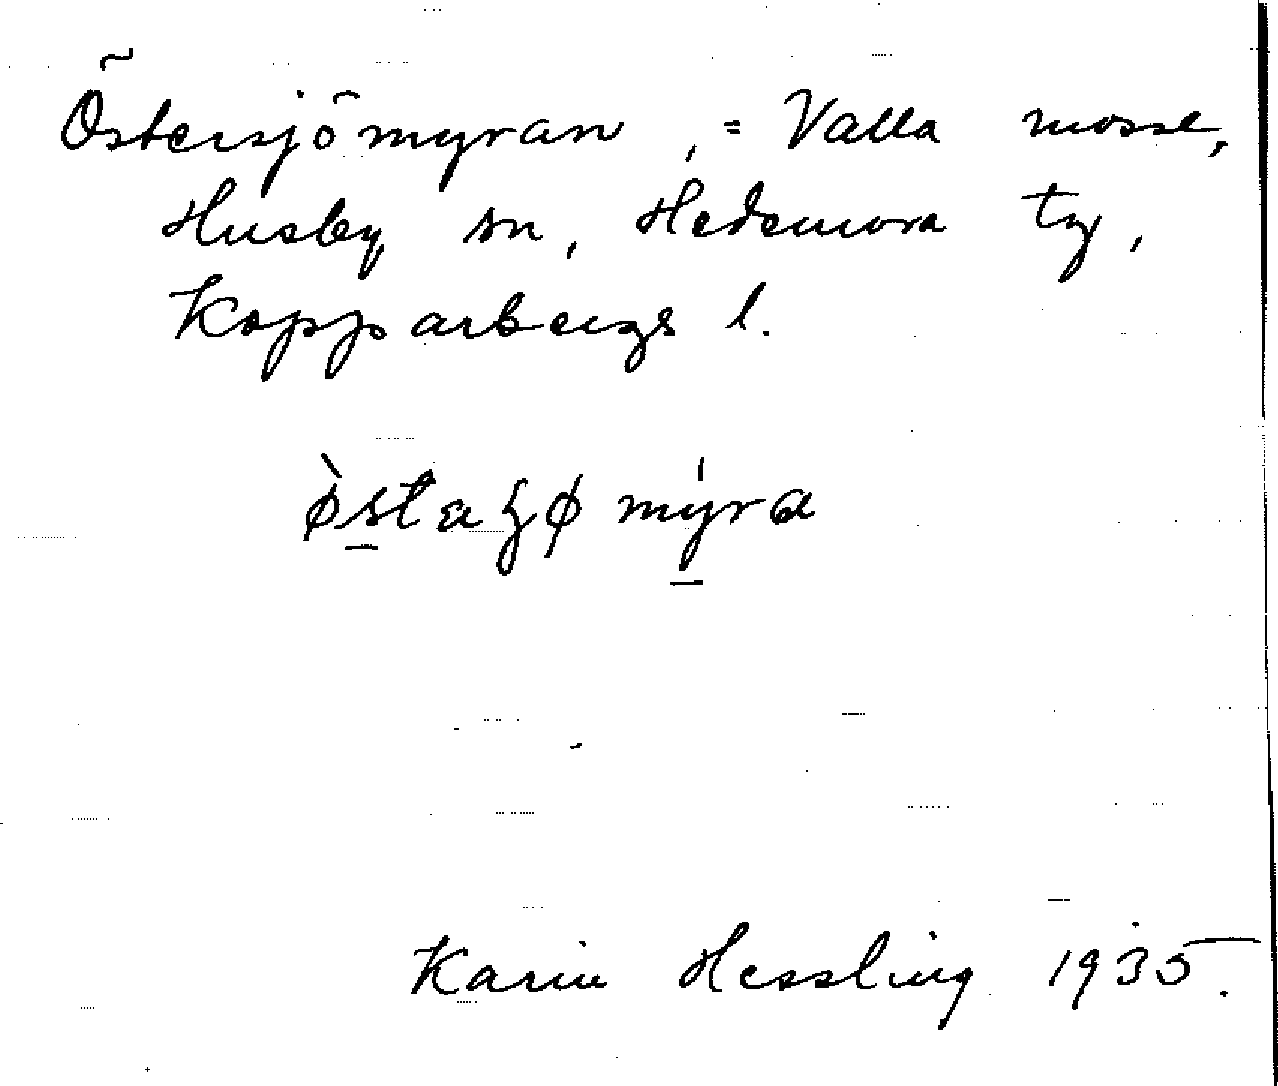 Östersjömyran, = Valla mosse,
Husby sn, Hedemora tg,
Kopparbergs l.
ø̀staʒø mýra
Karin Hessling 1935.